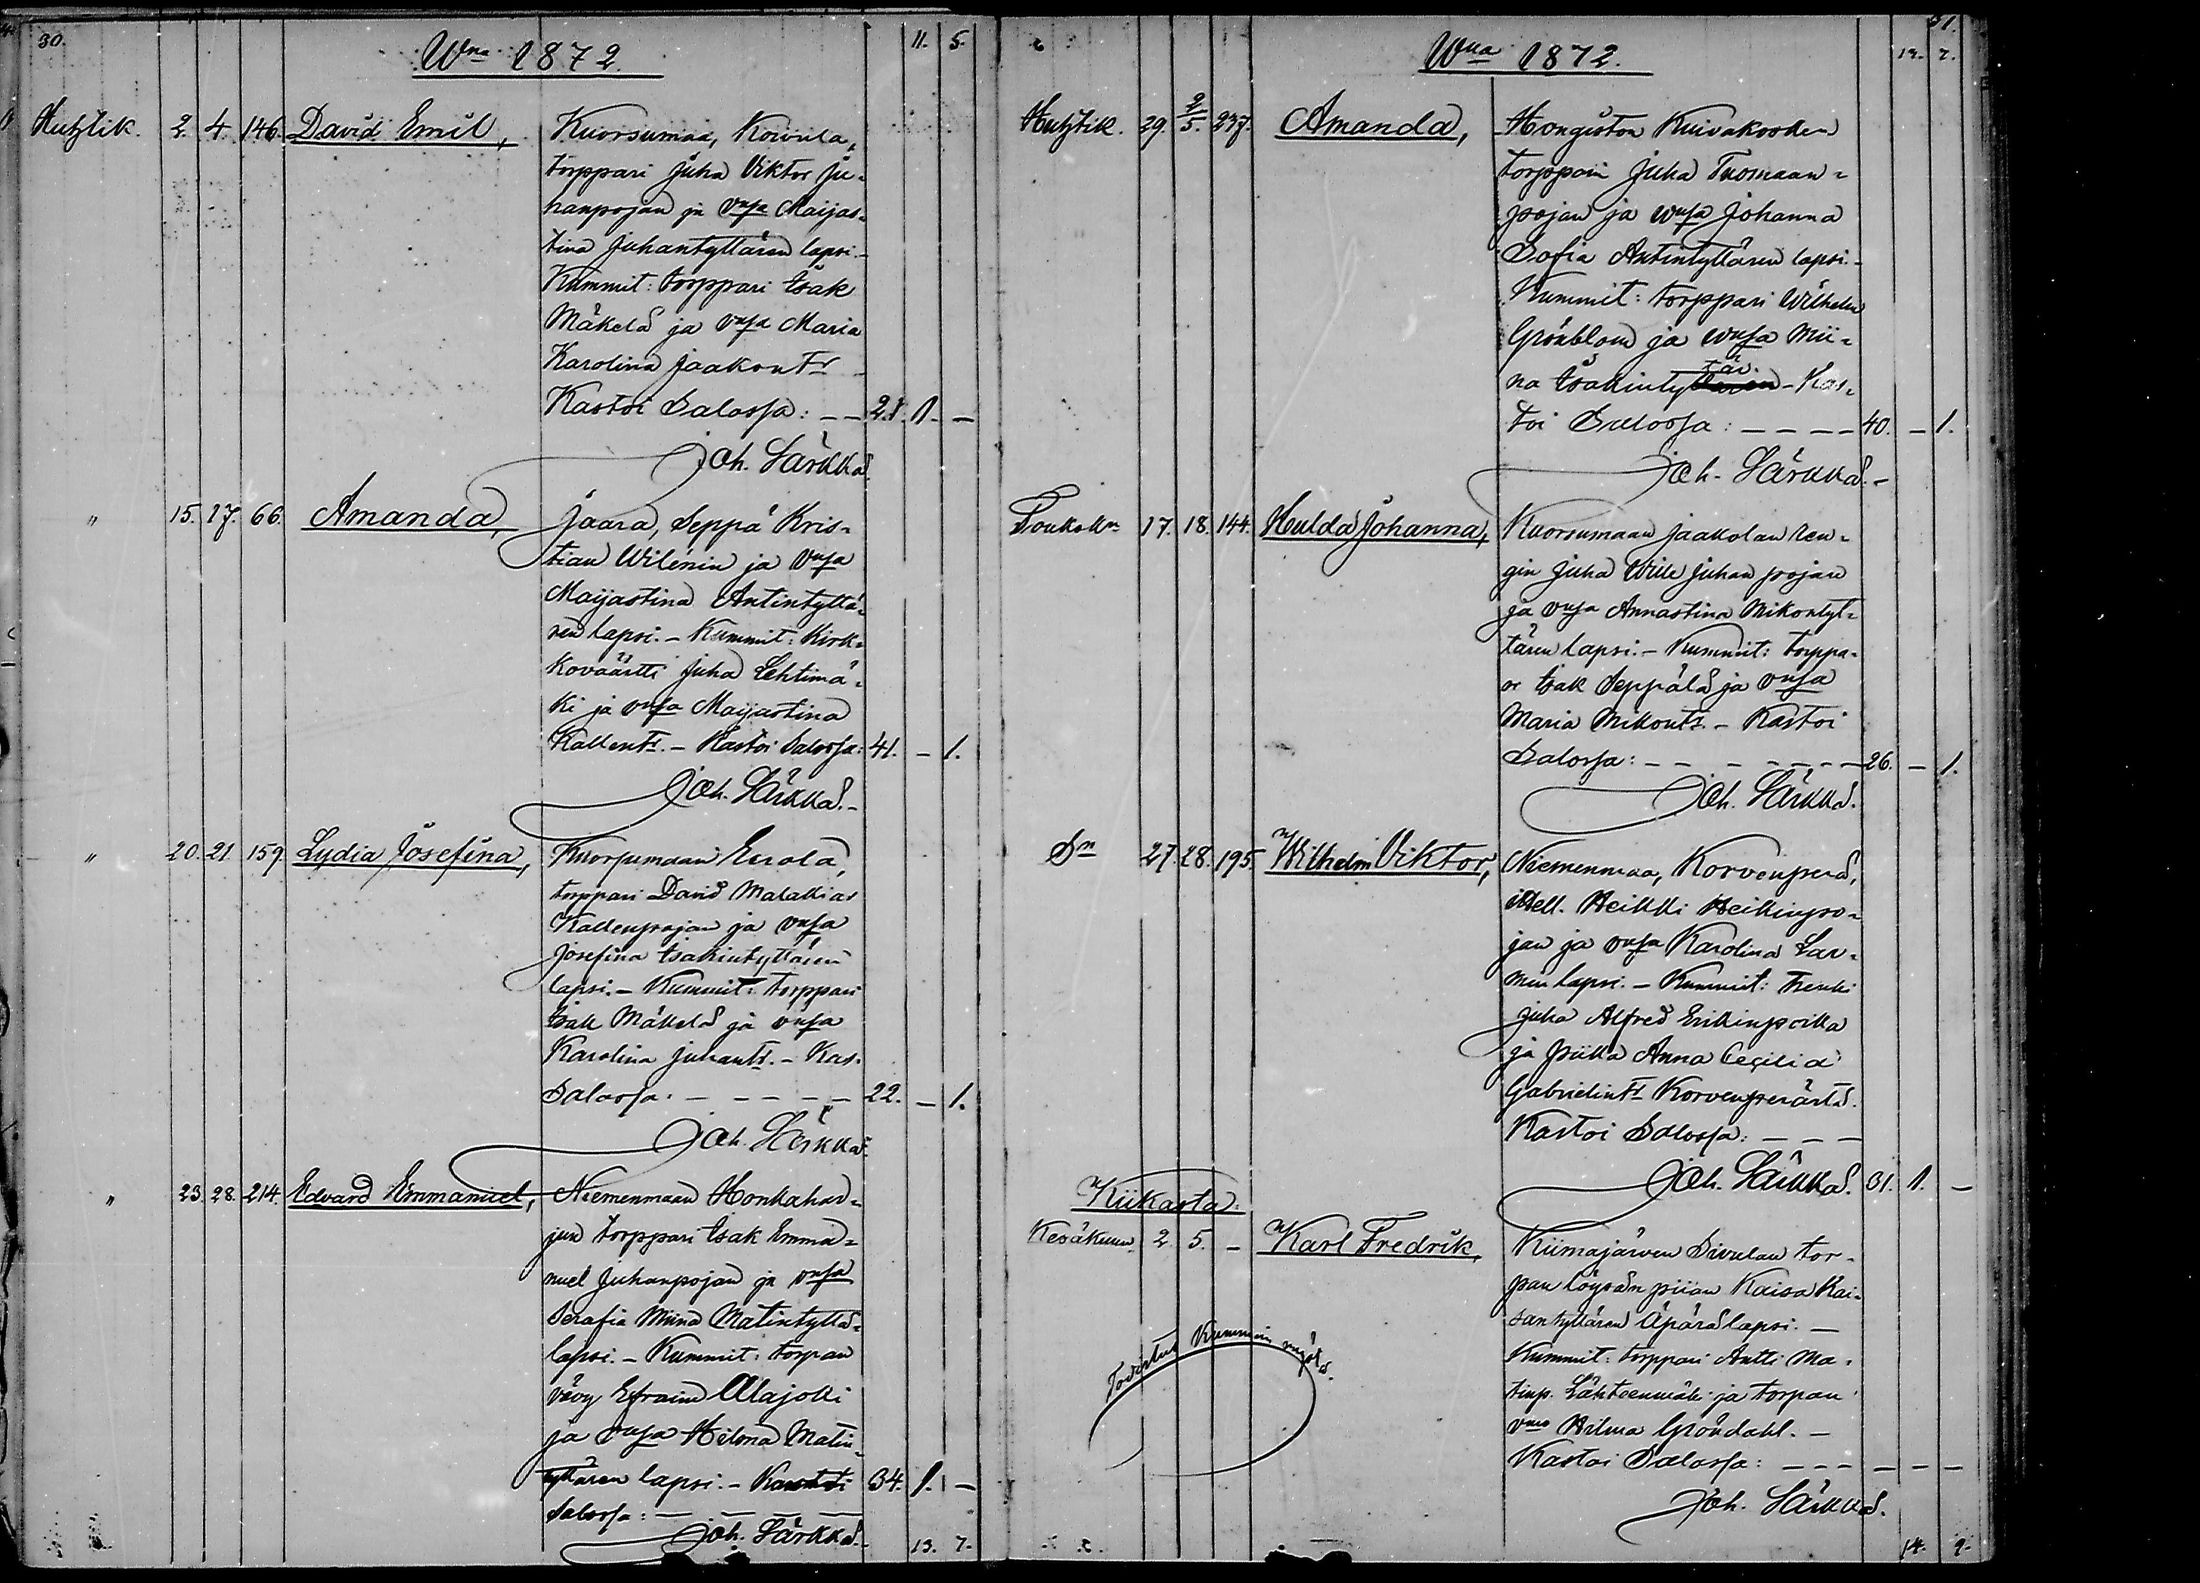 30.
Wna 1872.
11. 5.
Huhtik. 2. 4. 146. David Emil, Kuorsumaa, Koivula,
torppari Juha Viktor Ju-
hanpojan ja vmsa Maijas-
tina Juhantyttären lapsi.-
Kummit: torppari Isak
Mäkelä ja vmsa Maria
Karolina Jaakontr -
Kastoi Salossa: - - 21. 1. -
Joh. Särkkä.
" 15. 17. 66. Amanda, Jaara, Seppä Kris-
tian Wilénin ja vmsa
Maijastina Antintyttä-
ren lapsi. - Kummit: Kirk-
koväärtti Juha Lehtimä-
ki ja vmsa Maijastina
Kallentr. - Kastoi Salossa: 41. - 1.
Joh. Särkkä.-
" 20. 21. 159. Lydia Josefina, Kuorsumaan Eerola,
torppari David Malakias
Kallenpojan ja vmsa
Josefina Isakintyttären
lapsi. - Kummit: torppari
Isak Mäkelä ja vmsa
Karolina Juhantr. - Kas.
Salossa: - - - - - 22. - 1.
Joh. Särkkä.
" 23. 28. 214. Edvard Emmanuel, Niemenmaan Honkahar-
jun torppari Isak Emma-
nuel Juhanpojan ja vmsa
Serafia Miina Matintyttä-
lapsi. - Kummit: torpan
vävy Efraim Alajolli
ja vmsa Helena Matin-
tyttären lapsi. - Kastoi 34. 1. -
Salossa: - - - -
Joh. Särkkä.-
13. 7.
31.
Wna 1872.
12. 7.
Huhtik. 29. 2/5. 237. Amanda, Hongiston Kuivakosken
torppari Juha Tuomaan-
pojan ja wmsa Johanna
Sofia Antintyttären lapsi.-
Kummit: torppari Wilhelm
Grönblom ja wmsa Mii-
na Isakintytär. - Kas-
toi Salossa: - - - - 40. - 1.
Joh. Särkkä.-
Toukok. 17. 18. 144. Hulda Johanna, Kuorsumaan Jaakolan ren-
gin Juha Wille Juhan pojan
ja vmsa Annastina Mikontyt-
tären lapsi. - Kummit: torppa-
ri Isak Seppälä ja vmsa
Maria Mikontr. - Kastoi
Salossa: - - - - - - 26. - 1.
Joh. Särkkä.
Sn 27. 28. 195. Wilhelm Viktor, Niemenmaa, Korvenperä,
itsell. Heikki Heikinpo-
jan ja vmsa Karolina Lar-
min lapsi. - Kummit: Trenki
Juha Alfred Erikinpoika
ja piika Anna Cecilia
Gabrielintr Korvenperästä.
Kastoi Salossa: - - -
Joh. Särkkä. 31. 1. -
Kiikasta.
Kesäkuun 2. 5. - Karl Fredrik, Kiimajärven Sivulan tor-
pan löysän piian Kaisa Kai-
santyttären Äpärälapsi. -
Kummit: torppari Antti Ma-
tinp. Lähteenmäki ja torpan
vmo Hilma Gröndahl. -
Kastoi Salossa: - - - - - -
Joh. Särkkä.
Todistus Kummein myötä.
14. 9.